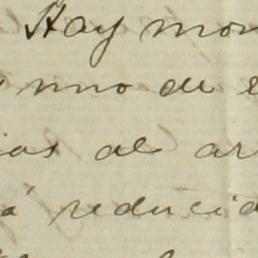 Hay mon
uno de e
ias al ar
a reducid